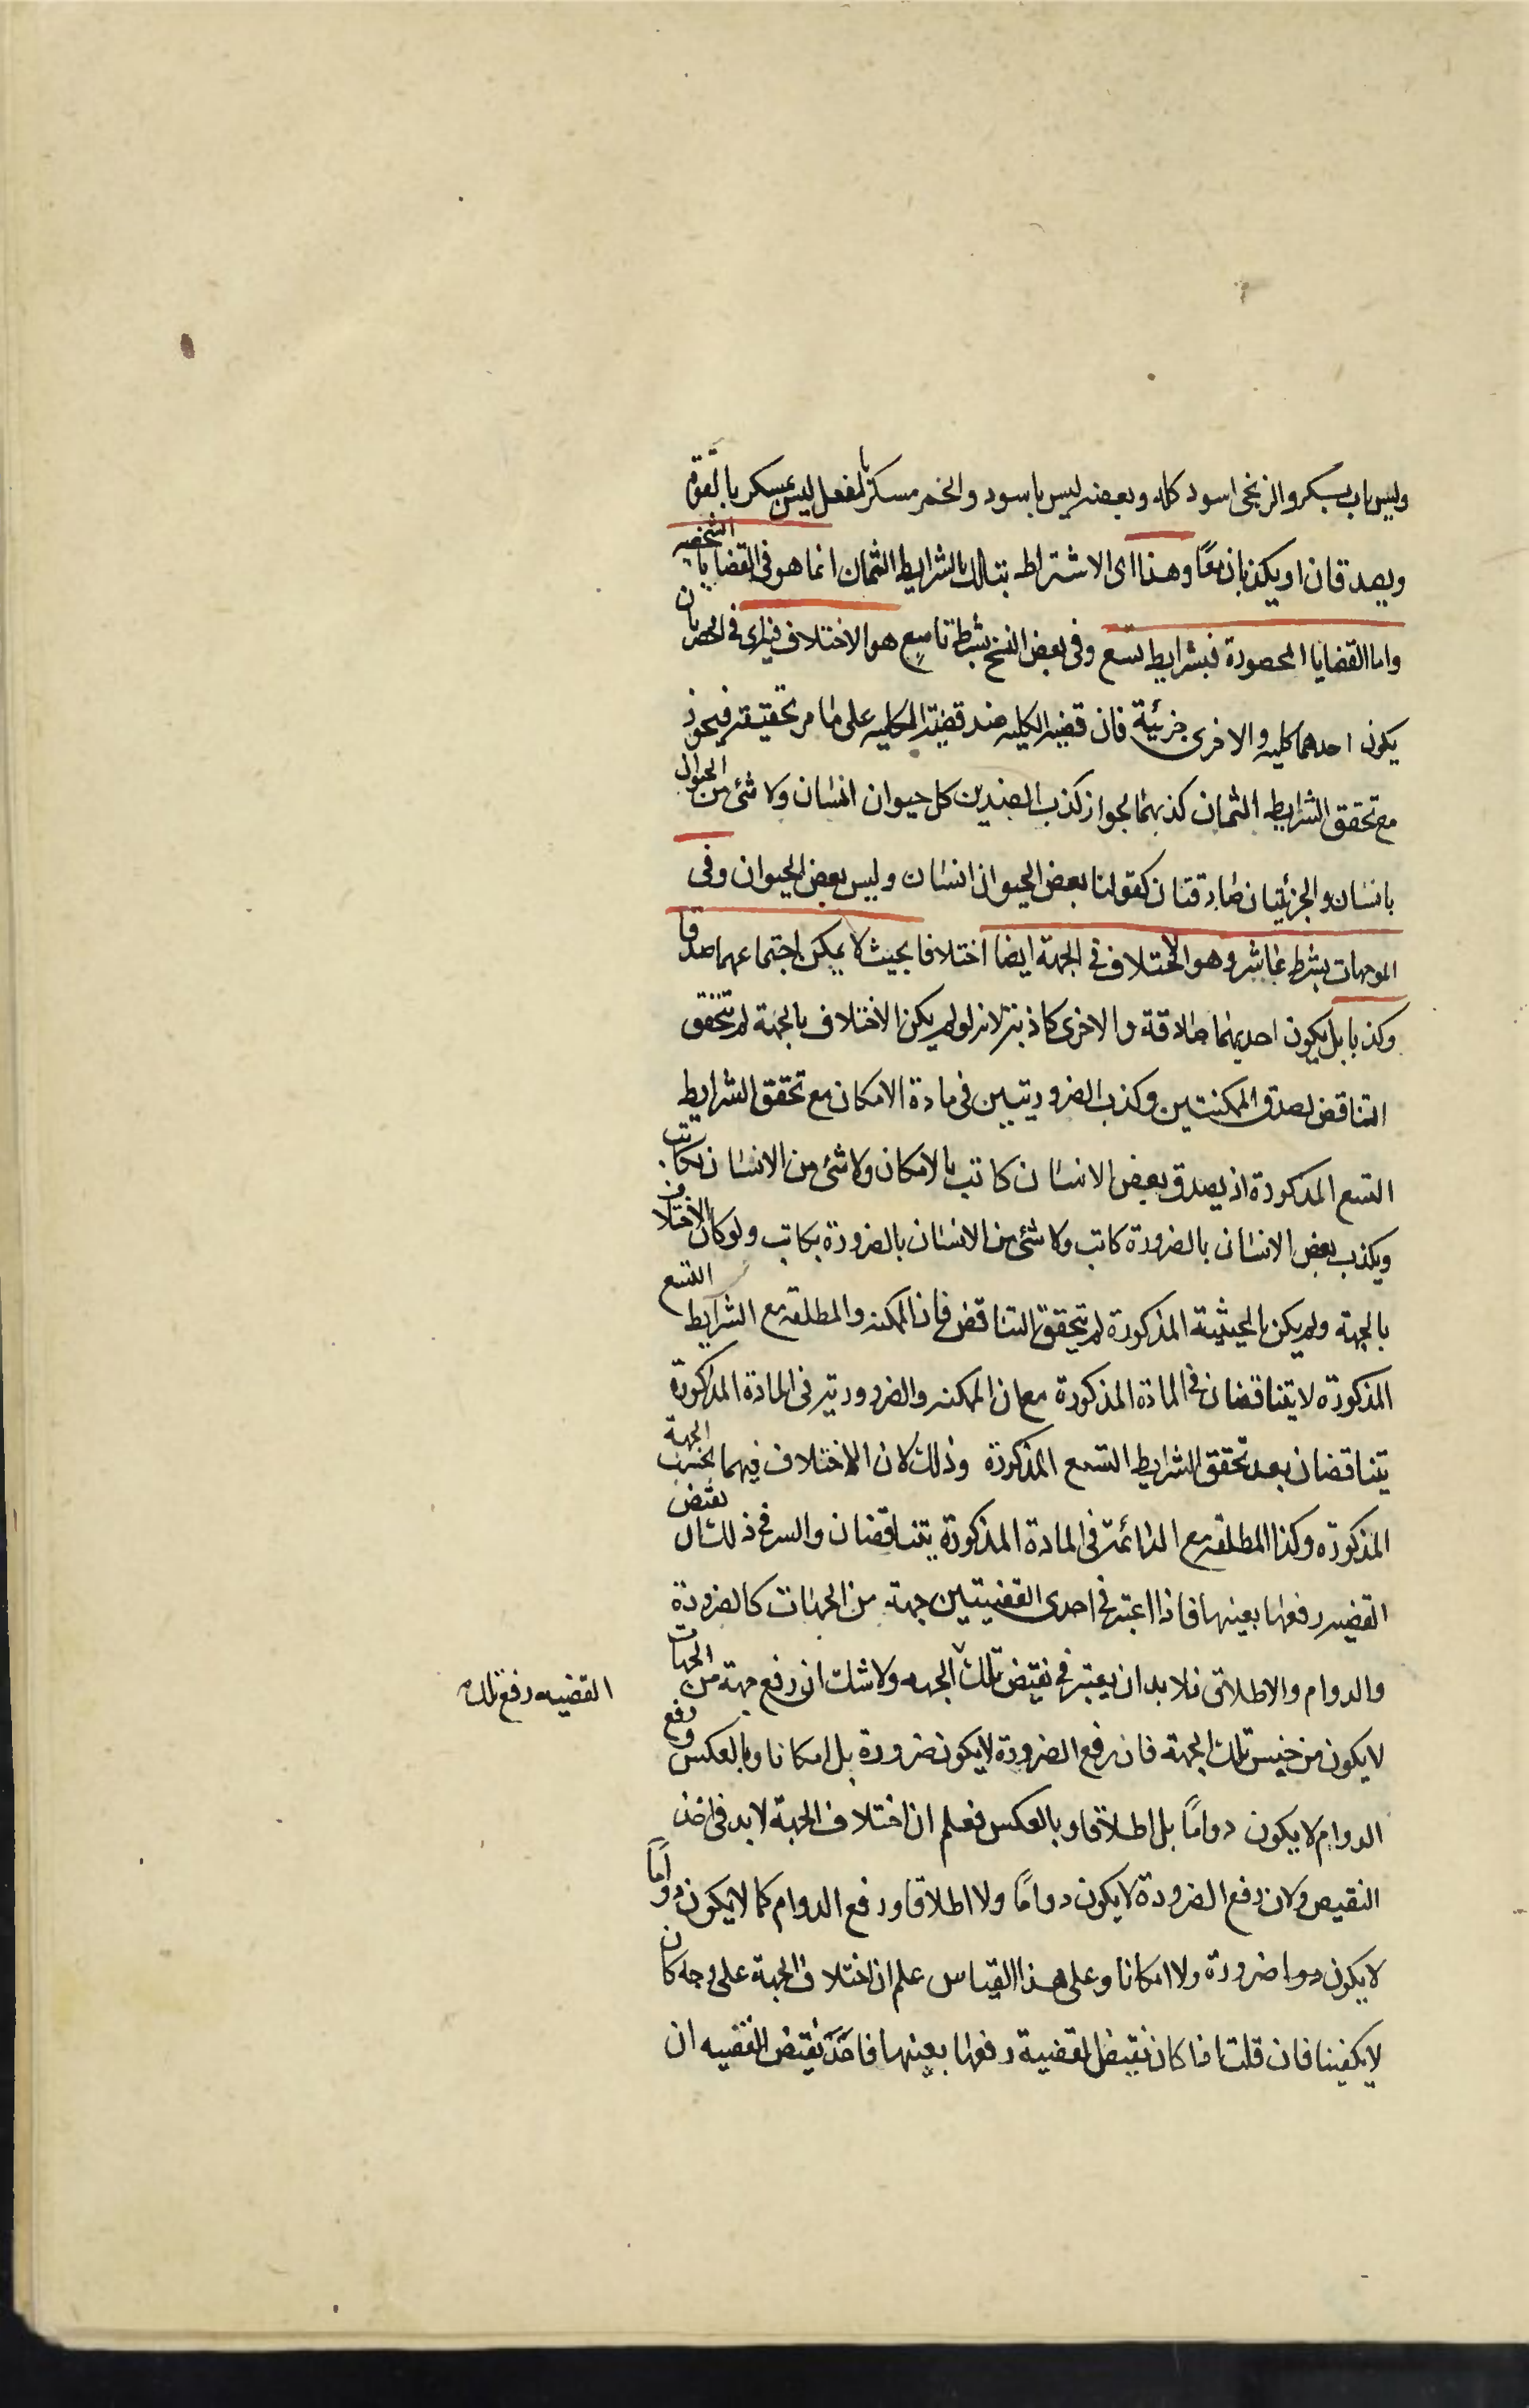 وليس باب بسكر والزنجى اسود كله وبعضه ليس باسود والخمر مسكر بالفعل ليس بمسكر بالقوة
ويصدقان او يكذبان معًا وهذا اى الاشتراط بتلك الشرايط الثمان انما هو فى القضايا الشخصيه
واما القضايا المحصورة فبشرايط تسع وفى بعض النسخ بشرط تاسعٍ هو الاختلاف فيه اى فى الحصر بان
يكون احدهما كليه والاخرى جزئية فان قضيه الكليه ضد قضية الكليه على ما مر تحقيقه فيجوز
مع تحقق الشرايط الثمان كذبهما لجواز كذب الضدين كل حيوان انسان ولا شئ من الحيوان
بانسان والجزئيتان صادقتان كقولنا بعض الحيوان انسان وليس بعض الحيوان وفى
الموجهات بشرط عاشر وهو الاختلاف فى الجهة ايضا اختلافا بحيث لا يمكن اجتماعهما صدقا
وكذبا بل يكون احديهما صادقة والاخرى كاذبة لانه لو لم يكن الاختلاف بالجهة لم يتحقق
التناقض لصدق الممكنتين وكذب الضروريتين فى مادة الامكان مع تحقق الشرايط
التسع المذكورة اذ يصدق بعض الانسان كاتب بالامكان ولا شئ من الانسان بكاتب
ويكذب بعض الانسان بالضرورة كاتب ولا شئ من الانسان بالضرورة بكاتب ولو كان الاختلاف
بالجهة ولم يكن بالحيثية المذكورة لم يتحقق التناقض فان الممكنه والمطلقه مع الشرايط التسع
المذكورة لا يتناقضان فى المادة المذكورة مع ان الممكنه والضرورتيه فى المادة المذكورة
يتناقضان بعد تحقق الشرايط التسع المذكورة وذلك لان الاختلاف فيهما بحسب الجهة
المذكورة وكذا المطلقه مع الدائمة فى المادة المذكورة يتناقضان والسر فى ذلك ان نقيض
القضيه رفعها بعينها فاذا اعتبر فى احدى القضيتين جهة من الجهات كالضرورة
والدوام والاطلاق فلا بد ان يعتبر فى نقيض تلك الجهه ولا شك ان رفع جهة من الجهات
القضيه رفع تلك
لا يكون من جنس تلك الجهة فان رفع الضرورة لا يكون ضرورة بل امكانا وبالعكس ورفع
الدوام لا يكون دوامًا بل اطلاقا وبالعكس فعلم ان اختلاف الجهة لا بد فى اخذ
النقيض ولان رفع الضرورة لا يكون دوامًا ولا اطلاقا ورفع الدوام كما لا يكون دوامًا
لا يكون دوا ضرورة ولا امكانا وعلى هذا القياس علم ان اختلاف الجهة على وجه كان
لا يكفينا فان قلت اذا كان نقيض القضية رفعها بعينها فاخذ نقيض القضيه ان